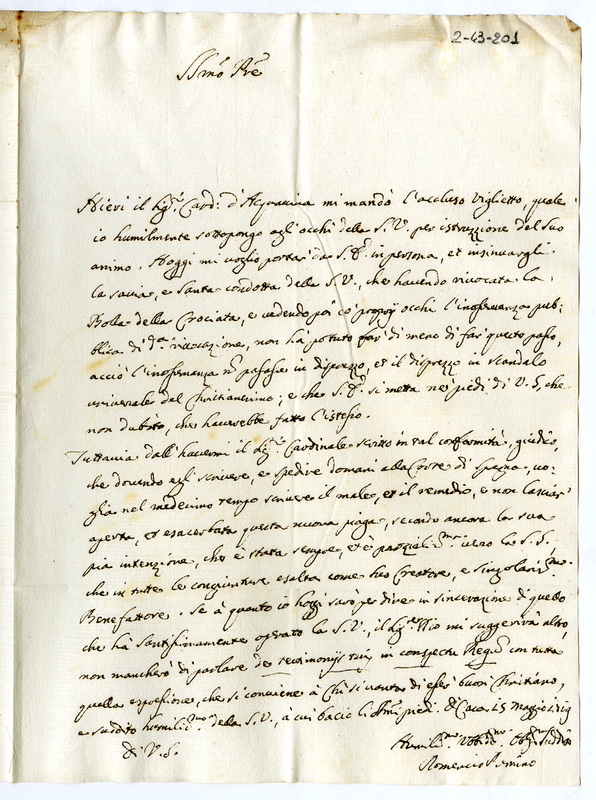 2-43-201
SSmo Pre
Hieri il Sigr. Card: d'Acquaviva mi mandò l'accluso viglietto, quale
io humilmente sottopongo agli occhi della S.V. per istruzzione del suo
animo. Hoggi mi voglio portar da S.E. in persona, et insinuargli
la savia, e santa condotta della S.V., che havendo rivocata la
Bolla della Crociata, e vedendo poi co' proprij occhi l'inosservanza pub=
blica di da. rivocazione, non hà potuto far di meno di far questo passo,
acciò l'inosservanza nō passasse in disprezzo, et il disprezzo in scandalo
universale del Christianesimo; e che S.E. si metta ne' piedi di V.S, che
non dubito, che haverebbe fatto l'istesso.
Tuttavia dall'havermi il Sigr. Cardinale scritto in tal conformità, giudico,
che dovendo egli scrivere, e spedire domani alla Corte di Spagna, vo=
glia nel medesimo tempo scrivere il male, et il remedio, e non lasciar
aperta, et esacerbata questa nuova piaga, secondo ancora la sua
pia intenzione, che è stata sempre, et è parzialma. vero la S.S.,
che in tutte le congiunture esalta come suo Creatore, e singolarissmo.
Benefattore. Se à quanto io hoggi sarò per dire in sincerazione di quello
che hà santissimamente operato la S.V., il Sigr. Iddio mi suggerirà altro,
non mancherò di parlare de testimonijs tuis in conspectu Regū con tutta
quella espressione, che si conviene à chi si vanta di esser buon Christiano,
e suddito humilissmo. della S.V., à cui bacio li Ssmi. piedi. Di Casa 25 Maggio
Di V.S.
Humilmo. Obbmo. Suddito